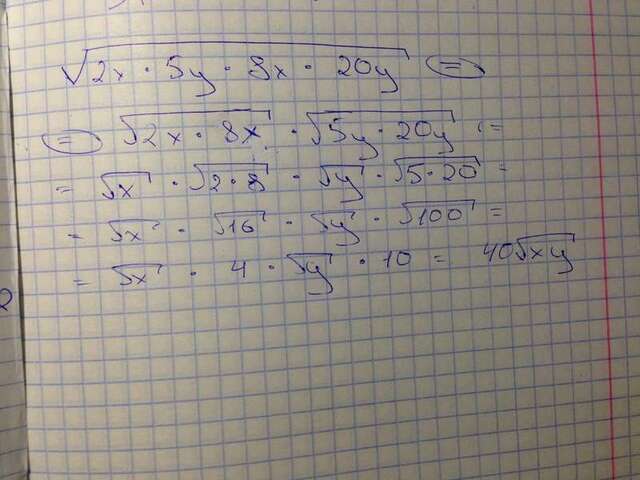 √2x · 5y · 8x · 20y =
= √2x · 8x · √5y · 20y =
= √x · √2·8 · √y · √5·20 =
= √x · √16 · √y · √100 =
= √x · 4 · √y · 10 = 40√xy
2